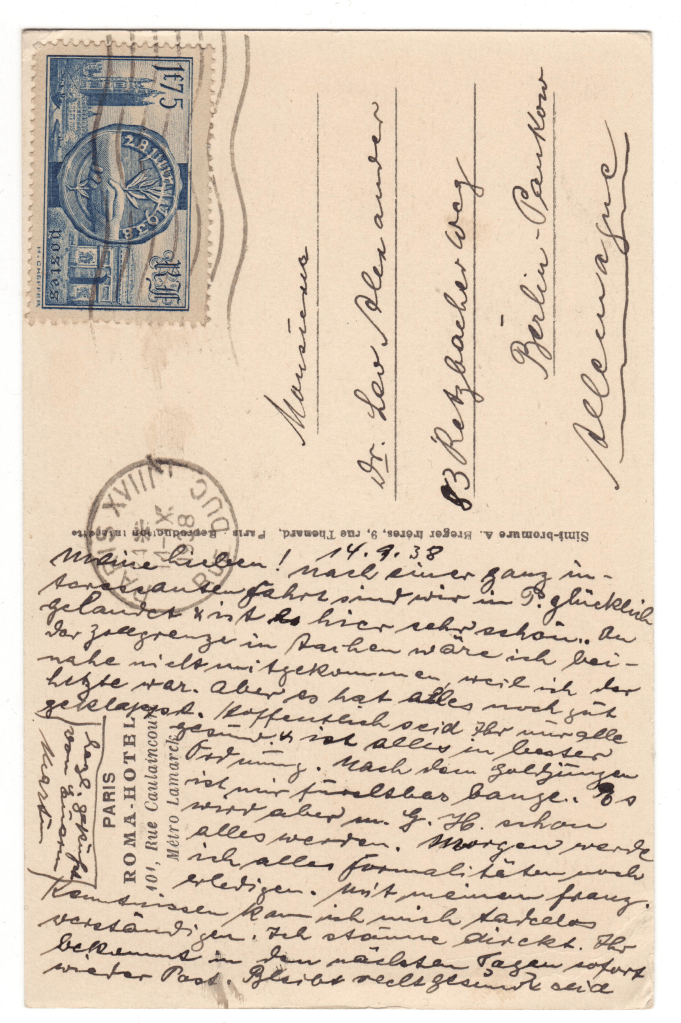 1f75
RF
Postes
H. CHEFFER
Monsieur
Dr. Leo Alexander
83 Retzbacher Weg
Berlin-Pankow
Allemagne
PARIS XVIII
RUE DUC
1938
Simi-bromure A. Breger frères, 9, rue Thenard, Paris Reproduction interdite
14.9.38
Meine Lieben! Nach einer ganz in-
teressanten Fahrt sind wir in P. glücklich
gelandet & ist es hier sehr schön. An
der Zollgrenze in Aachen wäre ich bei-
nahe nicht mitgekommen, weil ich der
letzte war. Aber es hat alles noch gut
geklappt. Hoffentlich seid Ihr nur alle
gesund & ist alles in bester
Ordnung. Nach dem Goldjungen
ist mir furchtbar bange. Es
wird aber m. G. H. schon
alles werden. Morgen werde
ich alles Formalitäten noch
erledigen. Mit meinen franz.
Kenntnissen kann ich mich tadellos
verständigen. Ich staune direkt. Ihr
bekommt in den nächsten Tagen sofort
wieder Post. Bleibt recht gesund & seid
herzl. gegrüßt
von Eurem
Martin
PARIS
ROMA-HOTEL
101, Rue Caulaincourt
Métro Lamarck